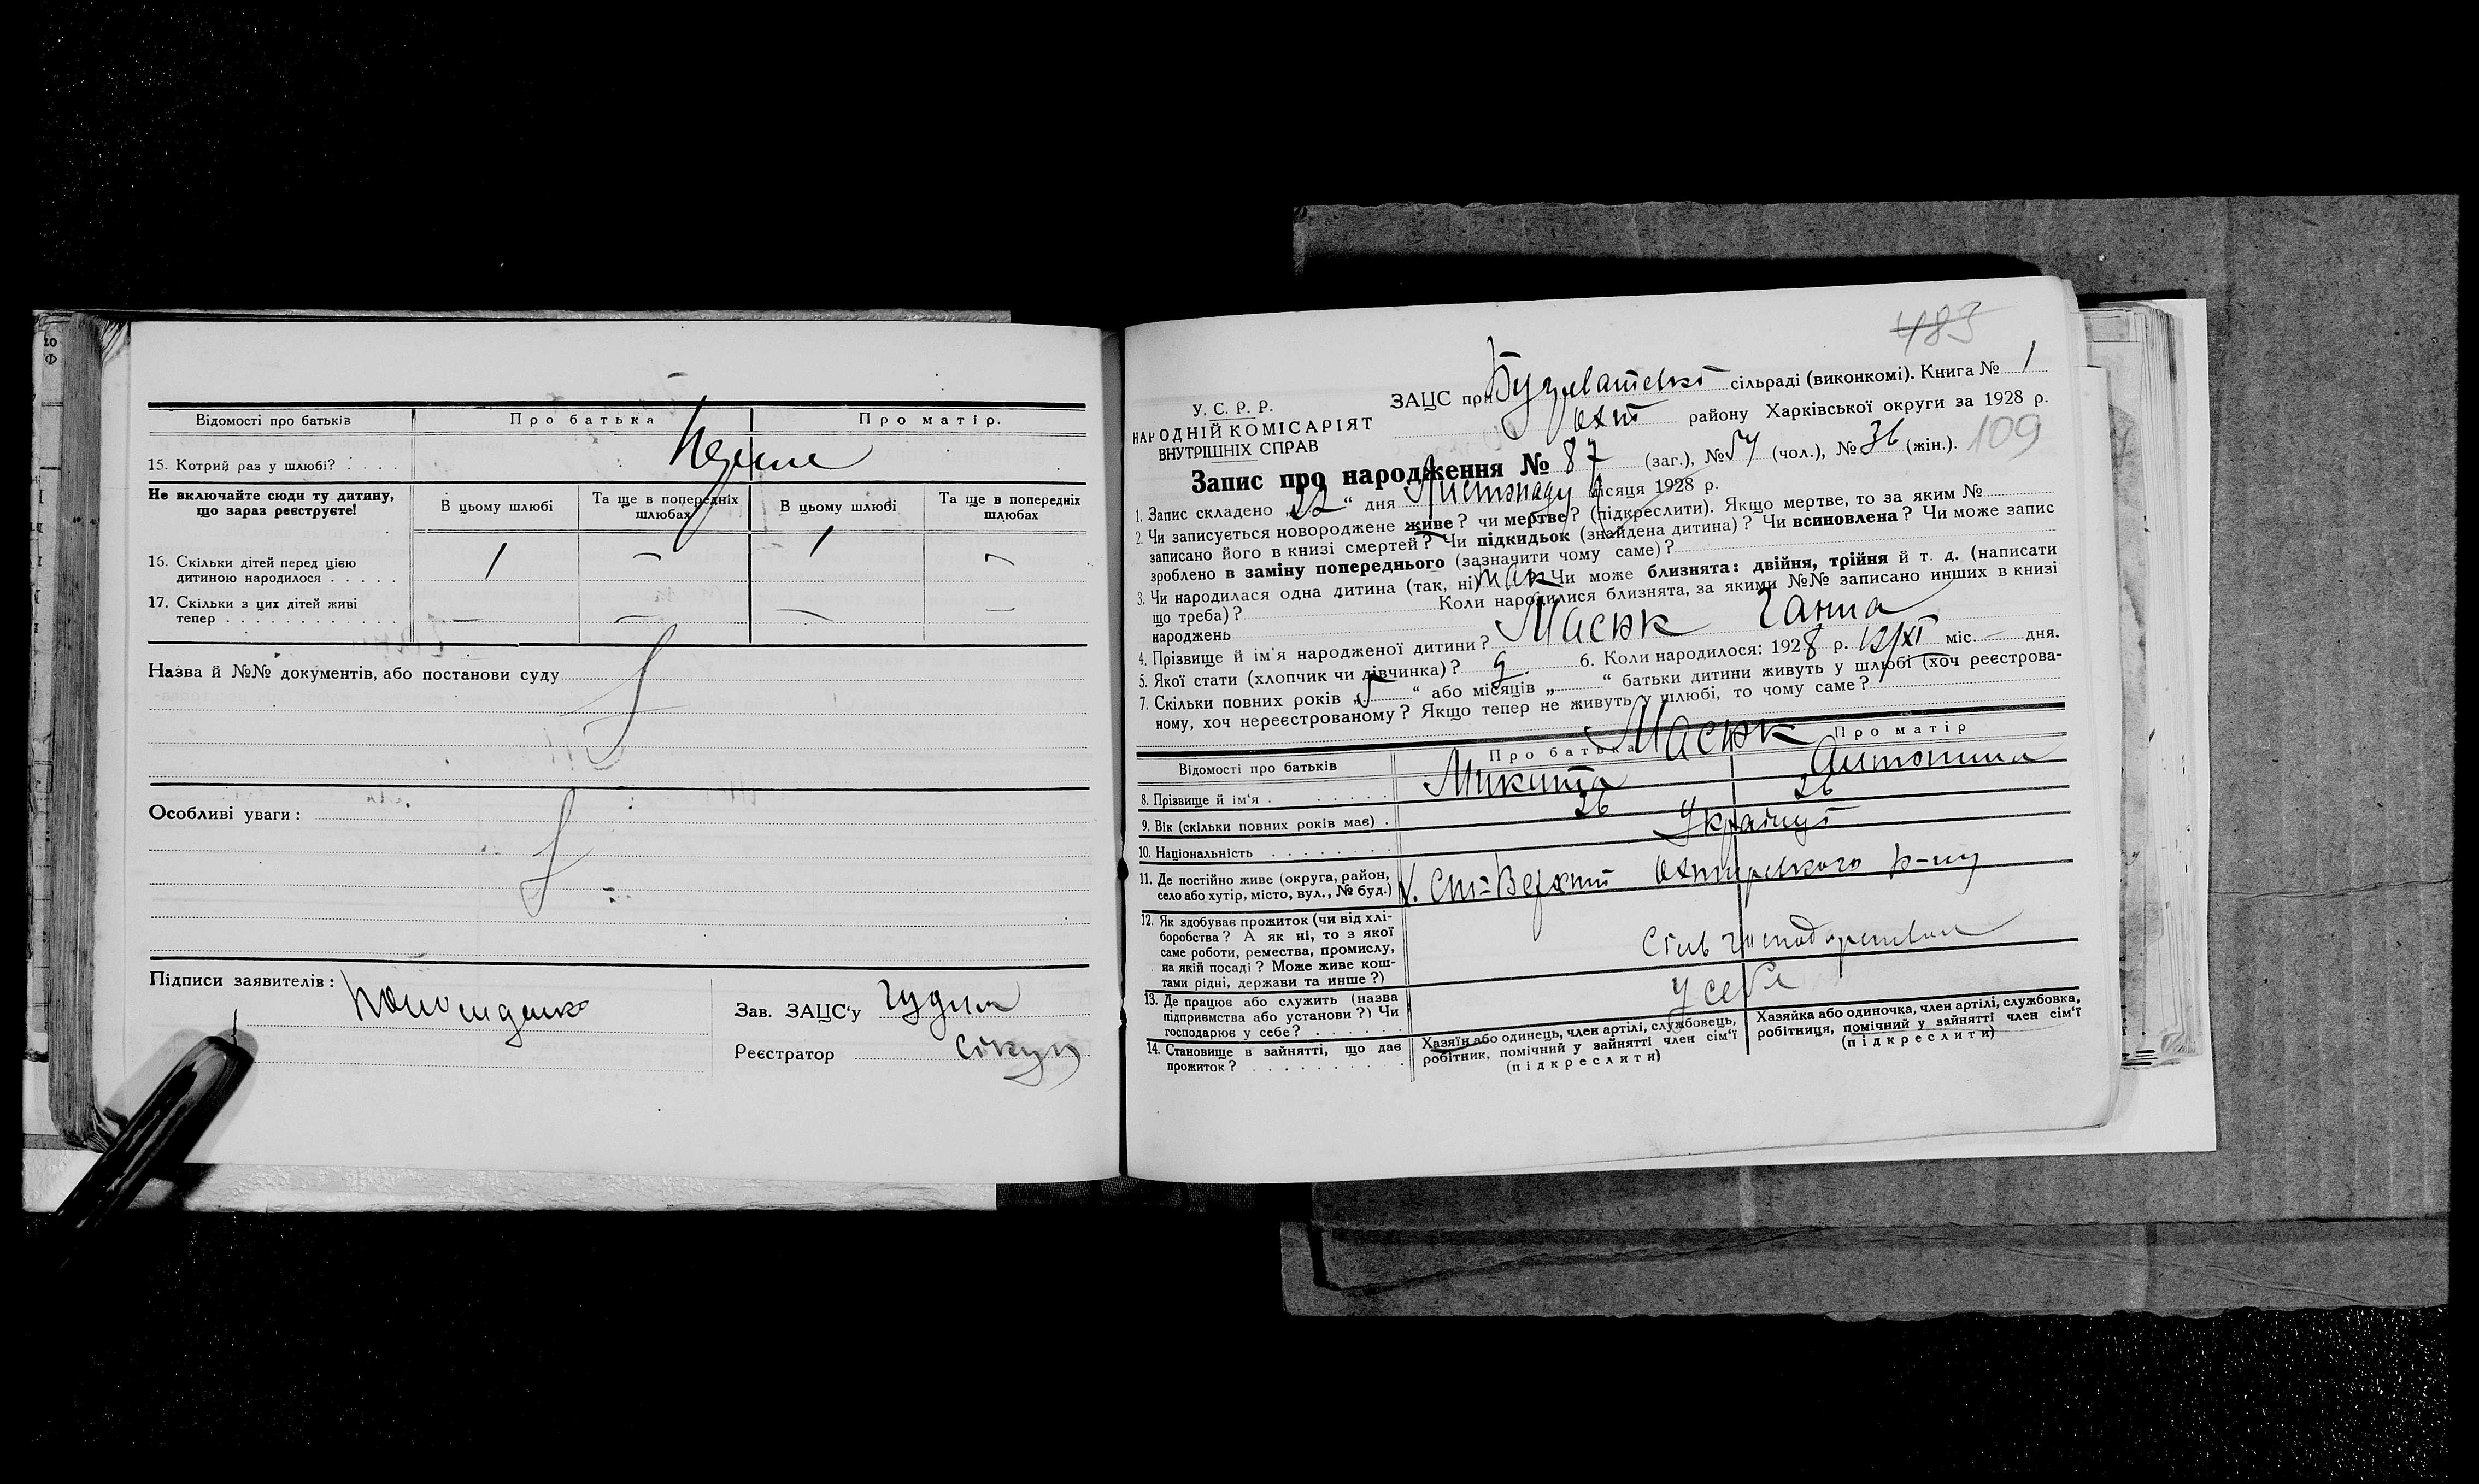 Відомості про батьків Про батька Про матір.
15. Котрий раз у шлюбі? Перше
Не включайте сюди ту дитину, що зараз реєструєте!
В цьому шлюбі Та ще в попередніх шлюбах В цьому шлюбі Та ще в попередніх шлюбах
16. Скільки дітей перед цією
дитиною народилося 1 — 1 —
17. Скільки з цих дітей живі
тепер — — — —
Назва й №№ документів, або постанови суду
Особливі уваги:
Підписи заявителів:
Зав. ЗАЦС'у
Реєстратор Сікун
483
У. С. Р. Р.
НАРОДНІЙ КОМІСАРІЯТ
ВНУТРІШНІХ СПРАВ
ЗАЦС при сільраді (виконкомі). Книга № 1
Охт району Харківської округи за 1928 р.
Запис про народження № 87 (заг.), № 51 (чол.), № 36 (жін.). 109
1. Запис складено „22“ дня Листопаду місяця 1928 р.
2. Чи записується новороджене живе? чи мертве? (підкреслити). Якщо мертве, то за яким №
записано його в книзі смертей? Чи підкидьок (знайдена дитина)? Чи всиновлена? Чи може запис
зроблено в заміну попереднього (зазначити чому саме)?
3. Чи народилася одна дитина (так, ні) так Чи може близнята: двійня, трійня й т. д. (написати
що треба)? Коли народилися близнята, за якими №№ записано инших в книзі
народжень
4. Прізвище й ім'я народженої дитини? Масюк Ганна
5. Якої стати (хлопчик чи дівчинка)? д. 6. Коли народилося: 1928 р. 12/XI міс. — дня.
7. Скільки повних років „5“ або місяців „ “ батьки дитини живуть у шлюбі (хоч реєстрова-
ному, хоч нереєстрованому? Якщо тепер не живуть у шлюбі, то чому саме?
Відомості про батьків Про батька Про матір
Масюк
8. Прізвище й ім'я Микита Антонина
9. Вік (скільки повних років має) 26 26
10. Національність Українці
11. Де постійно живе (округа, район,
село або хутір, місто, вул., № буд.) Охтирського р-ну
12. Як здобуває прожиток (чи від хлі-
боробства? А як ні, то з якої
саме роботи, ремества, промислу,
на якій посаді? Може живе кош-
тами рідні, держави та инше?) Сільгосподарством
13. Де працює або служить (назва
підприємства або установи?) Чи
господарює у себе? У себе
14. Становище в зайнятті, що дає
прожиток?
Хазяїн або одинець, член артілі, службовець,
робітник, помічний у зайнятті член сім'ї
(підкреслити)
Хазяйка або одиночка, член артілі, службовка,
робітниця, помічний у зайнятті член сім'ї
(підкреслити)